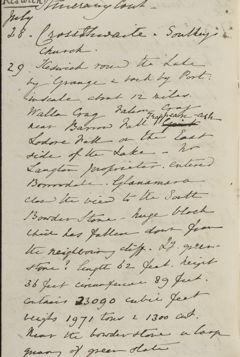 Keswick Itinerary Cont
July
28. Crossthwaite - Southey's
Church.
29. Keswick round the Lake
by Grange & back by Port-
inscale about 12 miles.
Walla Crag Falcon Crag
near Barrow Fall
Lodore Fall on the East
side of the Lake - Mr
Langton proprietor. Entered
Borrowdale. Glaramara
close the view to the South
Bowder Stone - huge block
which has fallen down from
the neighbouring cliff. Q. green
stone? length 62 feet. height
36 feet circumference 89 feet.
contains 23090 cubic feet
weighs 1971 tons & 1300 cwt.
Near the bowder stone a large
quarry of green slate